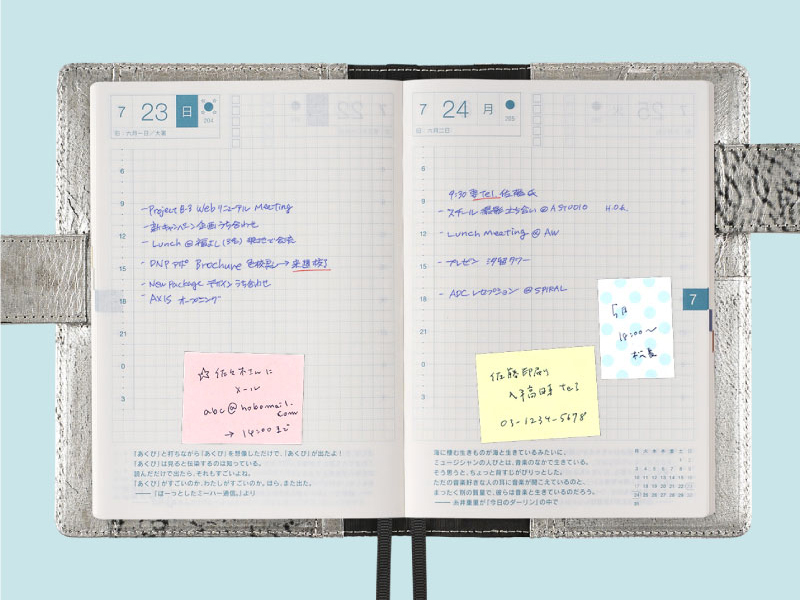 7 23 日
204
旧：六月一日／大暑
6
9
12
15
18
21
0
3
-Project B-3 Web リニューアル Meeting
-新キャンペーン企画うち合わせ
-Lunch @
-DNP Brochure
-New Package デザインうち合わせ
-AXIS オープニング
☆佐々木さんに
メール
abc@hobomail.
com
→ 14:00まで
「あくび」と打ちながら「あくび」を想像しただけで、「あくび」が出たよ！
「あくび」は見ると伝染するのは知っている。
読んだだけで出たら、それもすごいよね。
「あくび」がすごいのか、わたしがすごいのか。ほら、また出た。
——『ほーっとしたミーハー通信。』より
7 24 月
205
旧：六月二日
6
9
12
15
18
21
0
3
9:30 Tel 佐藤氏
-スチール撮影立ち合い @ A STUDIO H.O.K.
-Lunch Meeting @ AW
-プレゼン 汐留タワー
-ADC レセプション @ SPIRAL
7
18:00〜
佐藤部長
Tel
03-1234-5678
海に棲む生きものが海と生きているみたいに、
ミュージシャンの人びとは、音楽のなかで生きている。
そう思うと、ちょっと背すじがぴりっとした。
ただの音楽好きな人の耳に音楽が聞こえているのと、
まったく別の質量で、彼らは音楽と生きているのだろう。
——糸井重里が『今日のダーリン』の中で
月 火 水 木 金 土 日
1 2
3 4 5 6 7 8 9
10 11 12 13 14 15 16
17 18 19 20 21 22 23
24 25 26 27 28 29 30
31